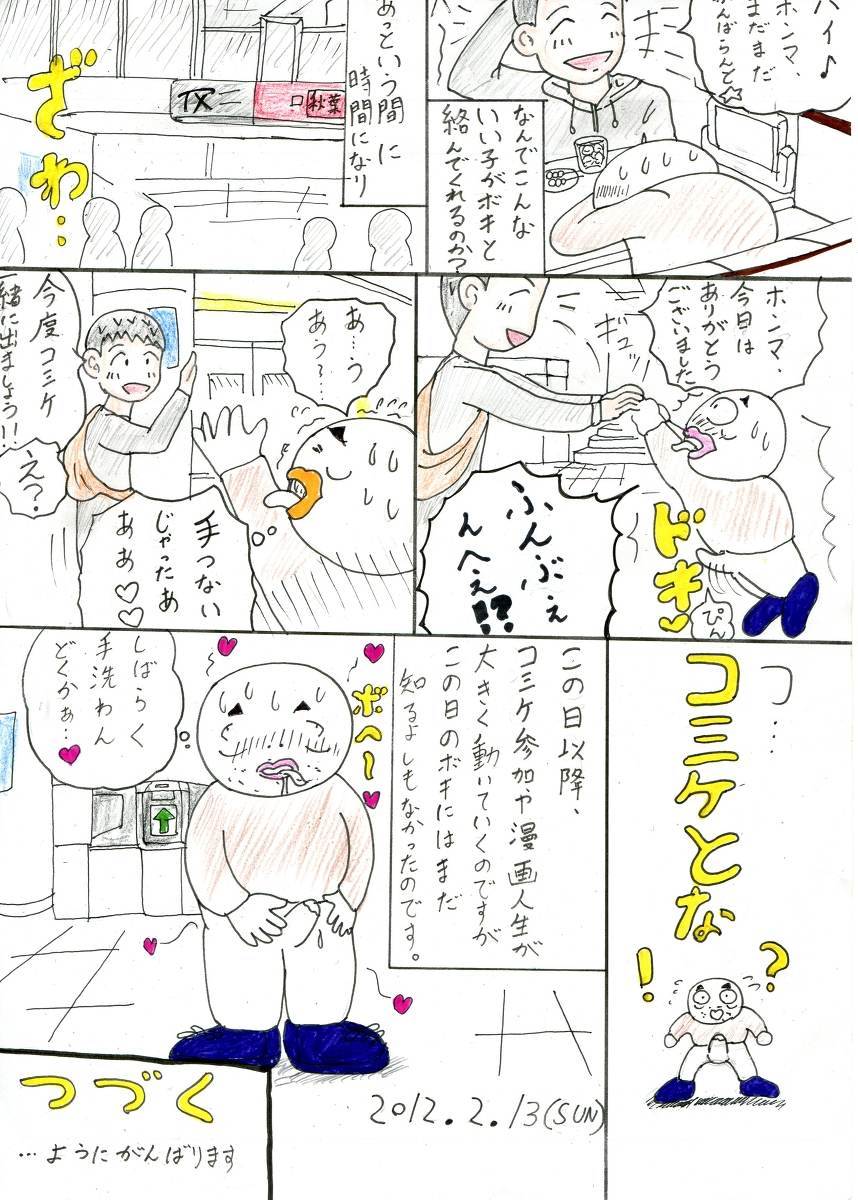 ハイ♪
ホンマ、
まだまだ
がんばらんと☆
なんでこんな
いい子がボキと
絡んでくれるのか?
あっという間に
時間になり
TX
秋葉
ざわ…
ホンマ、
今日は
ありがとう
ございました
ギュッ
ドキ
ぴん
ふんぶぇ
んへぇ!?
あ…う
あう〜…
今度コミケ
一緒に出ましょう!!
え?
手つない
じゃったぁ
ああ♡♡
コ…
コミケとな
!?
この日以降、
コミケ参加や漫画人生が
大きく動いていくのですが
この日のボキにはまだ
知るよしもなかったのです。
ボヘー
しばらく
手洗わん
どくかぁ…♥
2012.2.13(SUN)
つづく
…ようにがんばります